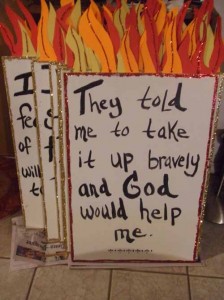 They told
me to take
it up bravely
and God
would help
me.
I
of
will
to